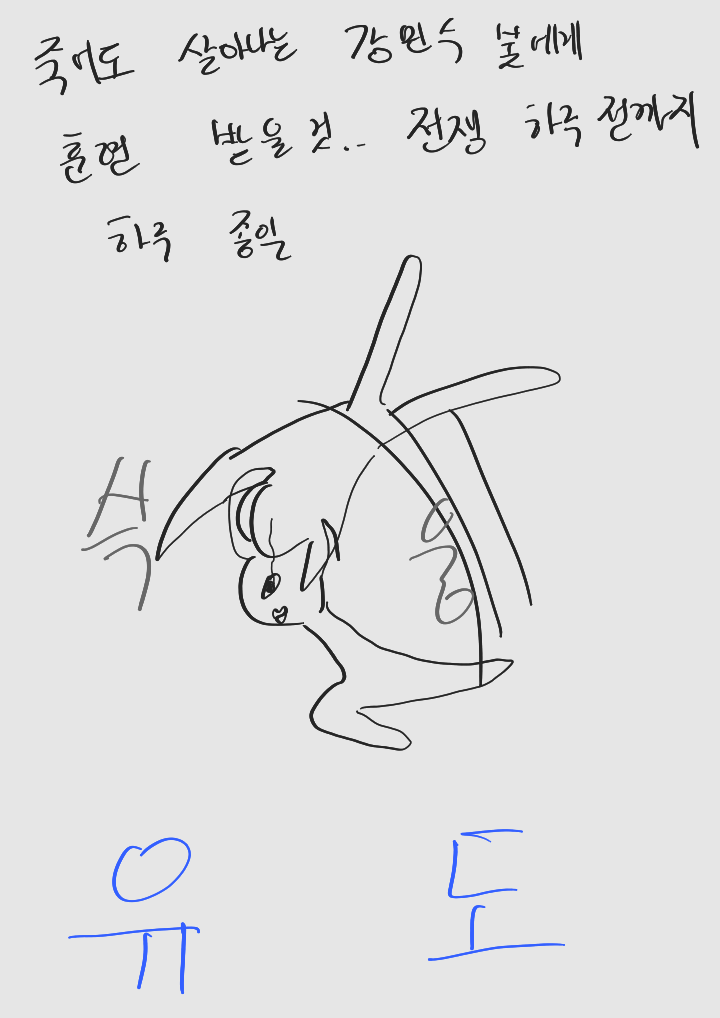 죽어도 살아나는 강원수 불에게
훈련 받을 것.. 전쟁 하루 전까지
하루 종일
숙용
유도